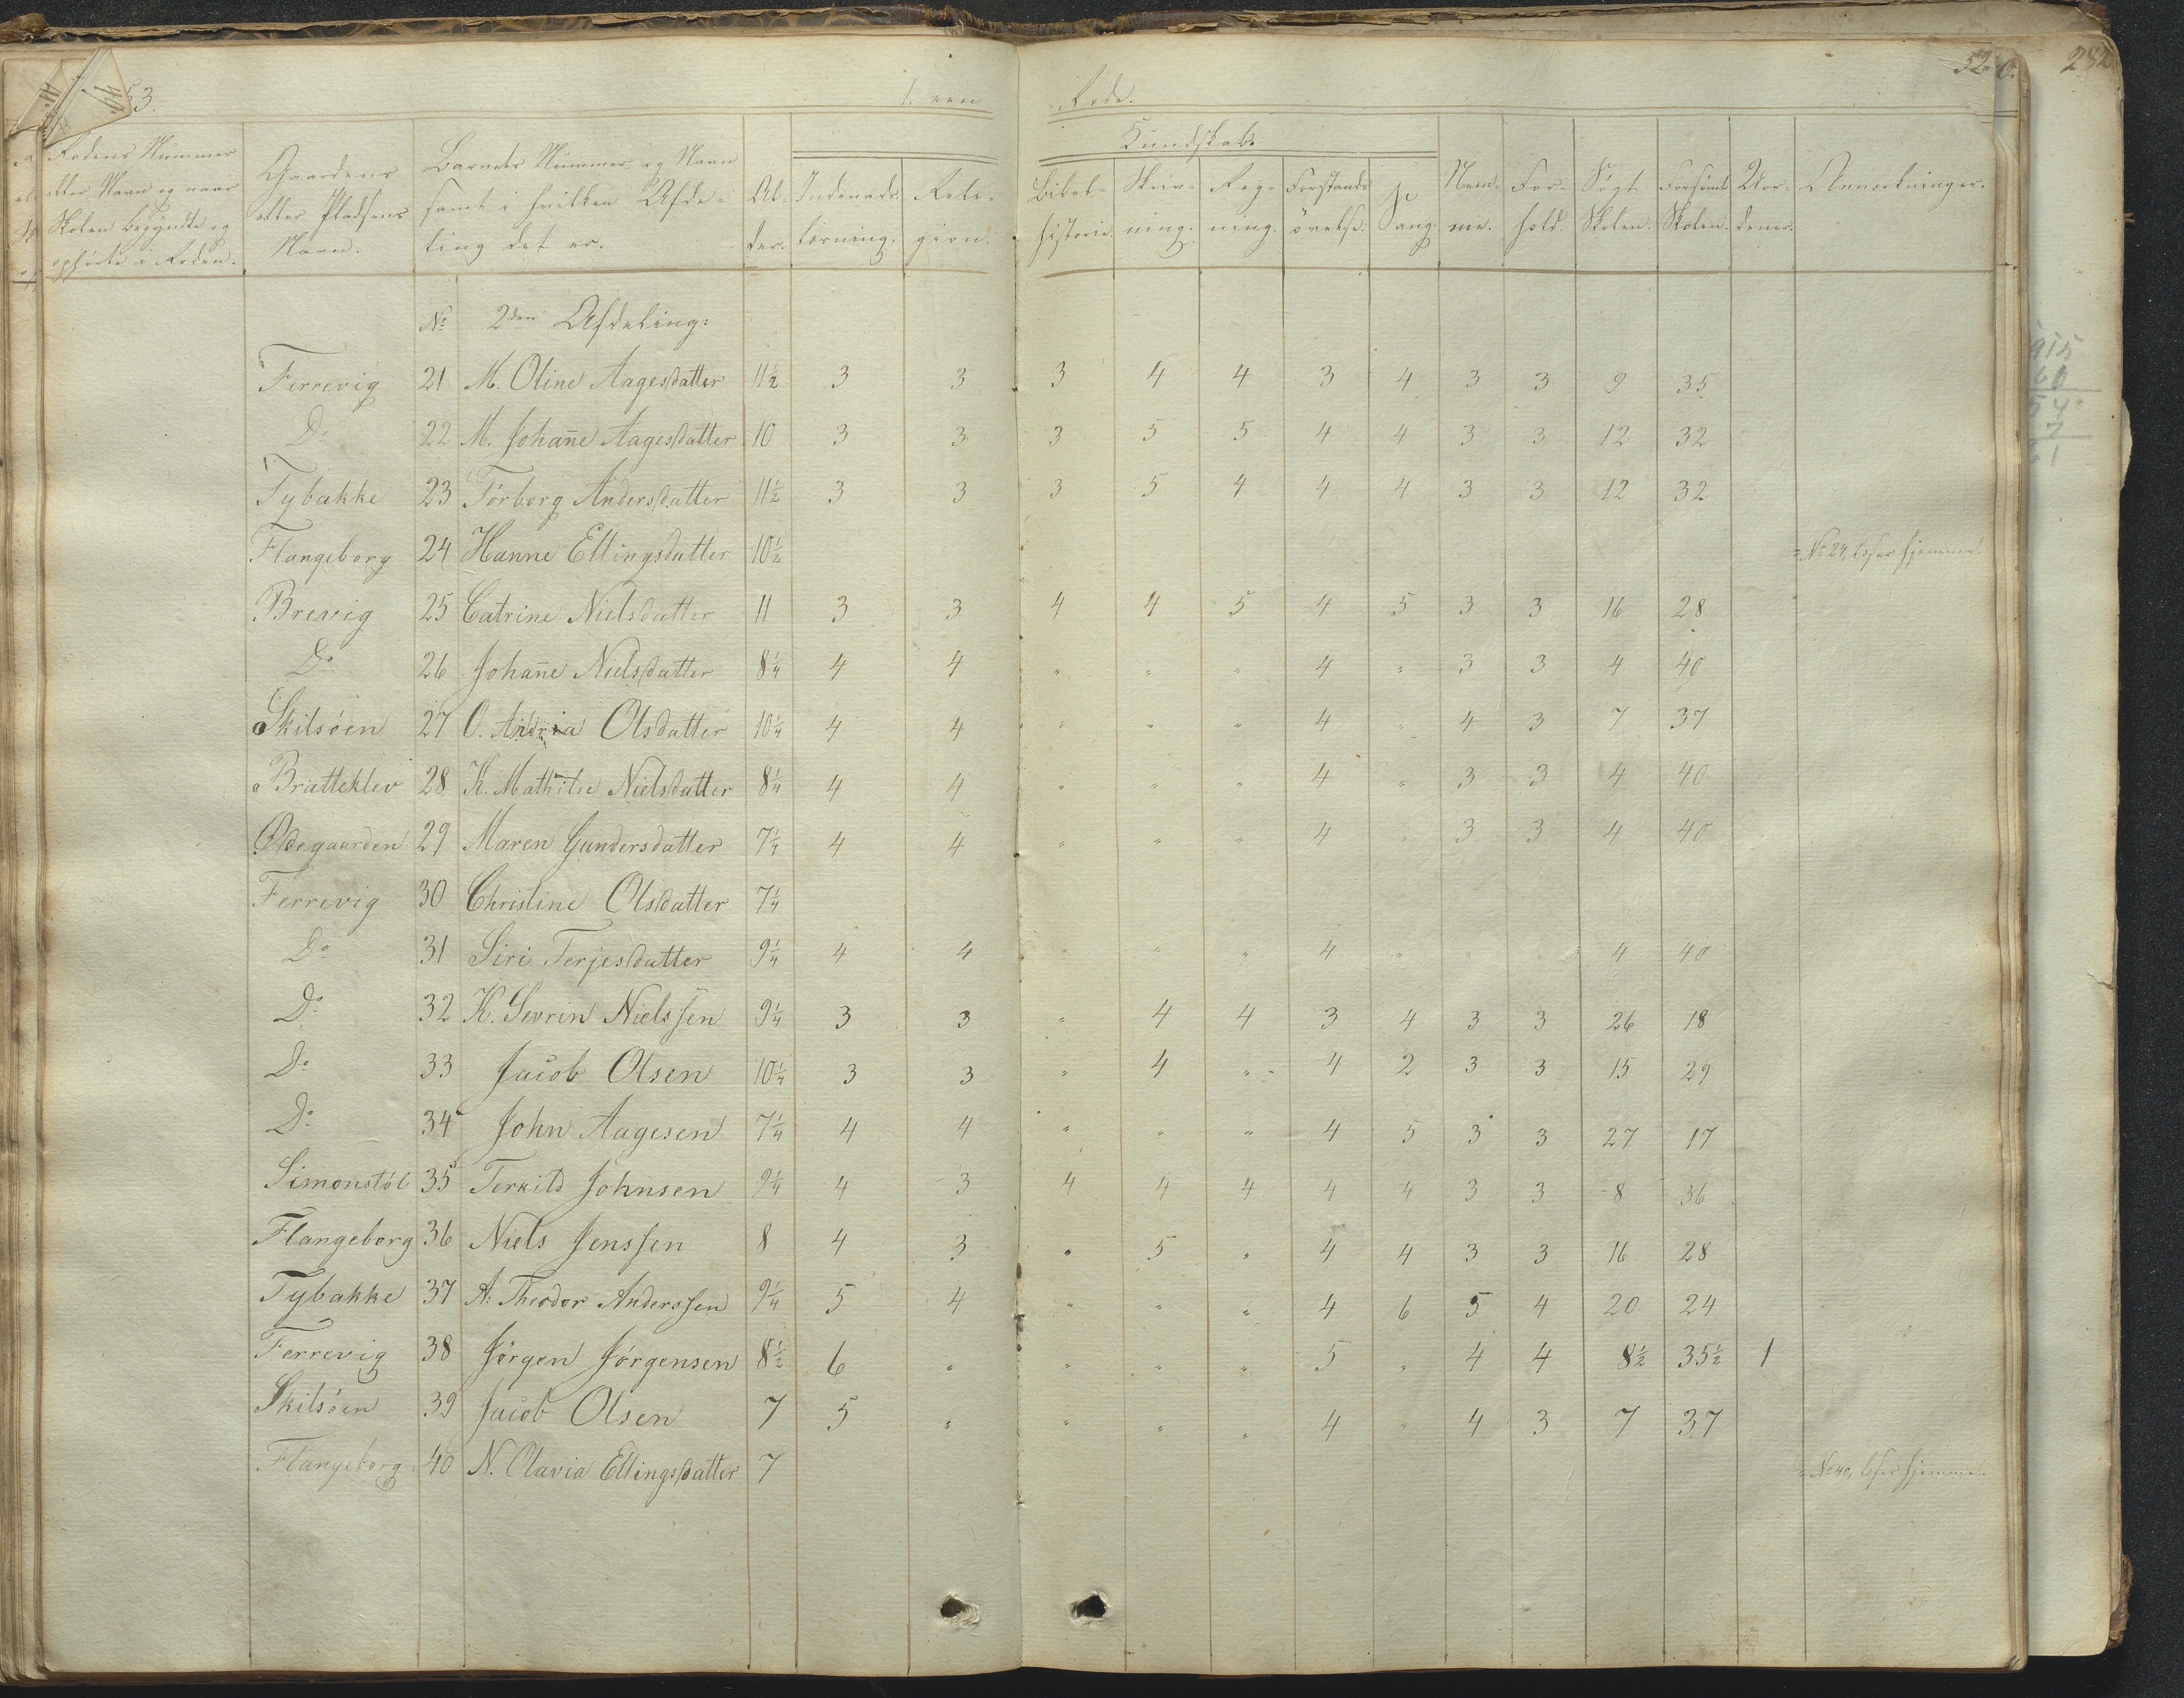 53.
1. een Rode.
52.
282
Rodens Nummer eller Navn og naar Skolen begyndte og ophörte i Roden.
Gaardens eller Pladsens Navn.
Barnets Nummer og Navn samt i hvilken Afdeling det er.
Alder.
Kundskab.
Indenadslæsning.
Religion.
Bibelhistorie.
Skrivning.
Regning.
Forstandsövelse.
Sang.
Nemme.
Forhold.
Sögt Skolen.
Forsömt Skolen.
Uordener.
Anmærkninger.
No 2den Afdeling:
Ferrevig 21 M. Oline Aagesdatter 11½ 3 3 3 4 4 3 4 3 3 9 35
Do 22 M. Johan̄e Aagesdatter 10 3 3 3 5 5 4 4 3 3 12 32
Tybakke 23 Törborg Andersdatter 11½ 3 3 3 5 4 4 4 3 3 12 32
Flangeborg 24 Hanne Ellingsdatter 10½ No 24, læser hjemme.
Brevig 25 Catrine Nielsdatter 11 3 3 4 4 5 4 5 3 3 16 28
Do 26 Johan̄e Nielsdatter 8¼ 4 4 " " " 4 " 3 3 4 40
Skilsöen 27 O. Andria Olsdatter 10¼ 4 4 " " " 4 " 4 3 7 37
Bratteklev 28 K. Mathilde Nielsdatter 8¼ 4 4 " " " 4 " 3 3 4 40
Ødegaarden 29 Maren Gundersdatter 7¼ 4 4 " " " 4 " 3 3 4 40
Ferrevig 30 Christine Olsdatter 7¼
Do 31 Siri Terjesdatter 9¼ 4 4 " " " 4 " " " 4 40
Do 32 K. Sevrin Nielssen 9¼ 3 3 " 4 4 3 4 3 3 26 18
Do 33 Jacob Olsen 10¼ 3 3 " 4 " 4 2 3 3 15 29
Do 34 John Aagesen 7¼ 4 4 " " " 4 5 3 3 27 17
Simonstöl 35 Terkild Johnsen 9¼ 4 3 4 4 4 4 4 3 3 8 36
Flangeborg 36 Niels Jenssen 8 4 3 " 5 " 4 4 3 3 16 28
Tybakke 37 A: Theodor Anderssen 9¼ 5 4 " " " 4 6 5 4 20 24
Ferrevig 38 Jörgen Jörgensen 8½ 6 " " " " 5 " 4 4 8½ 35½ 1
Skilsöen 39 Jacob Olsen 7 5 " " " " 4 " 4 3 7 37
Flangeborg 40 N. Olavia Ellingsdatter 7 No 40, læser hjemme.